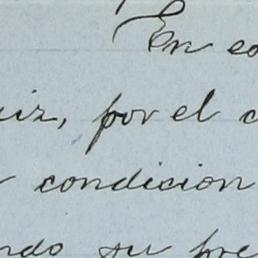 En co
uiz, por el c
condicion
ndo su pre